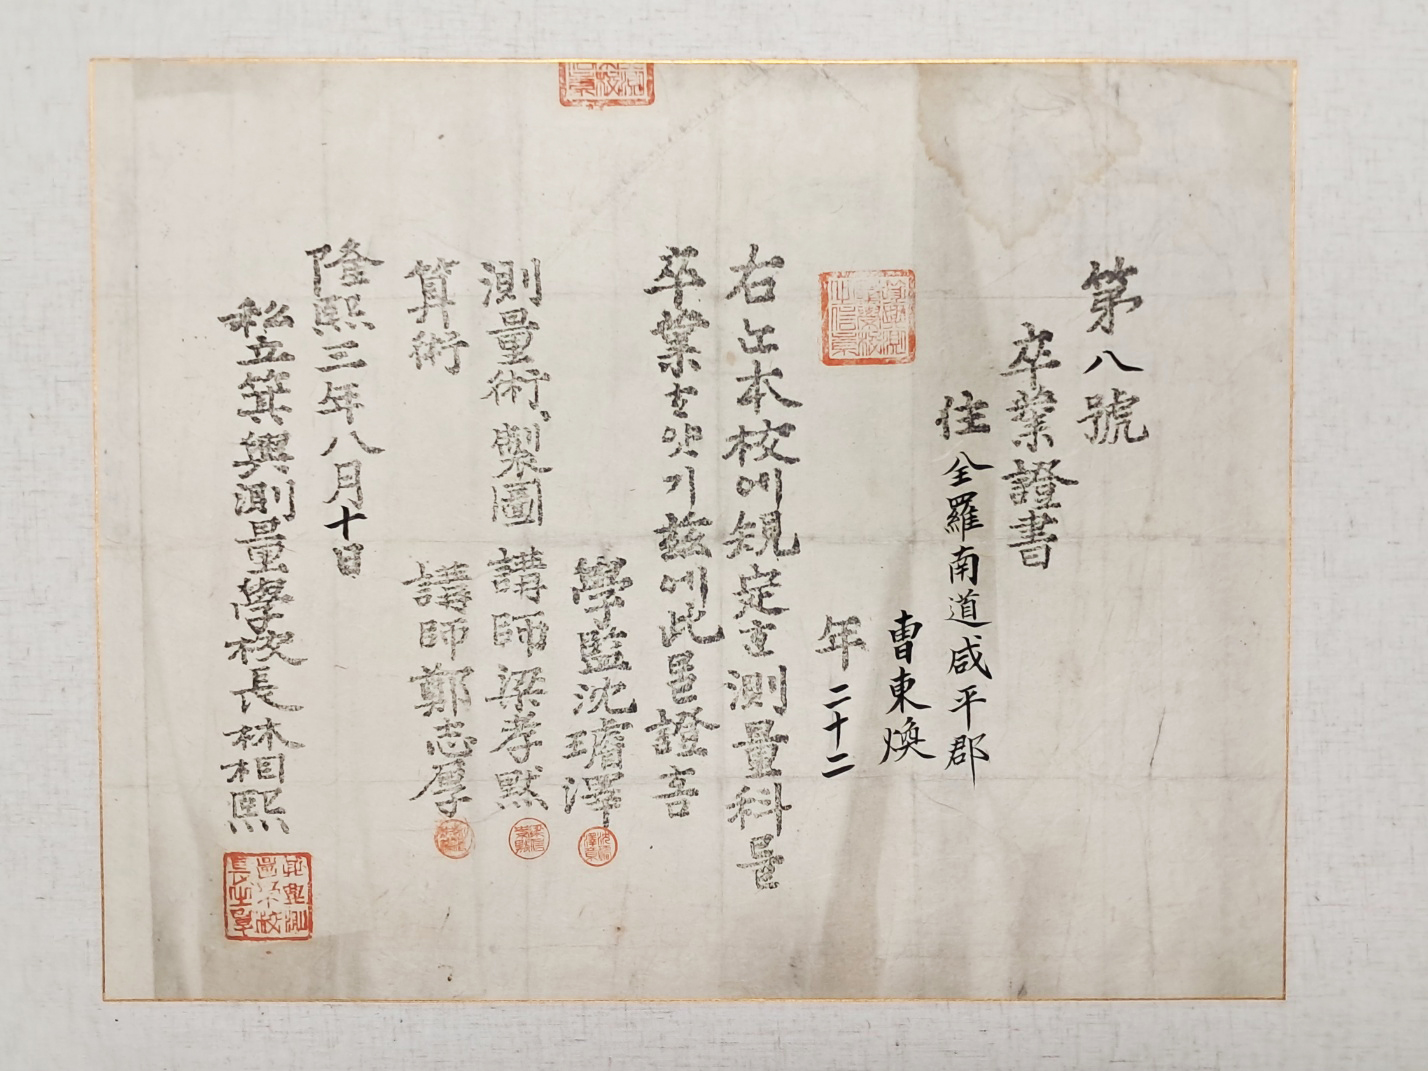 第八號
卒業證書
住 全羅南道咸平郡
曹東煥
年 二十二
右는本校에規定ᄒᆞᆫ測量科를
卒業ᄒᆞ얏기玆에此를證홈
學監沈璿澤
測量術、製圖 講師梁孝默
算術 講師鄭志厚
隆熙三年八月十日
私立箕興測量學校長林相熙